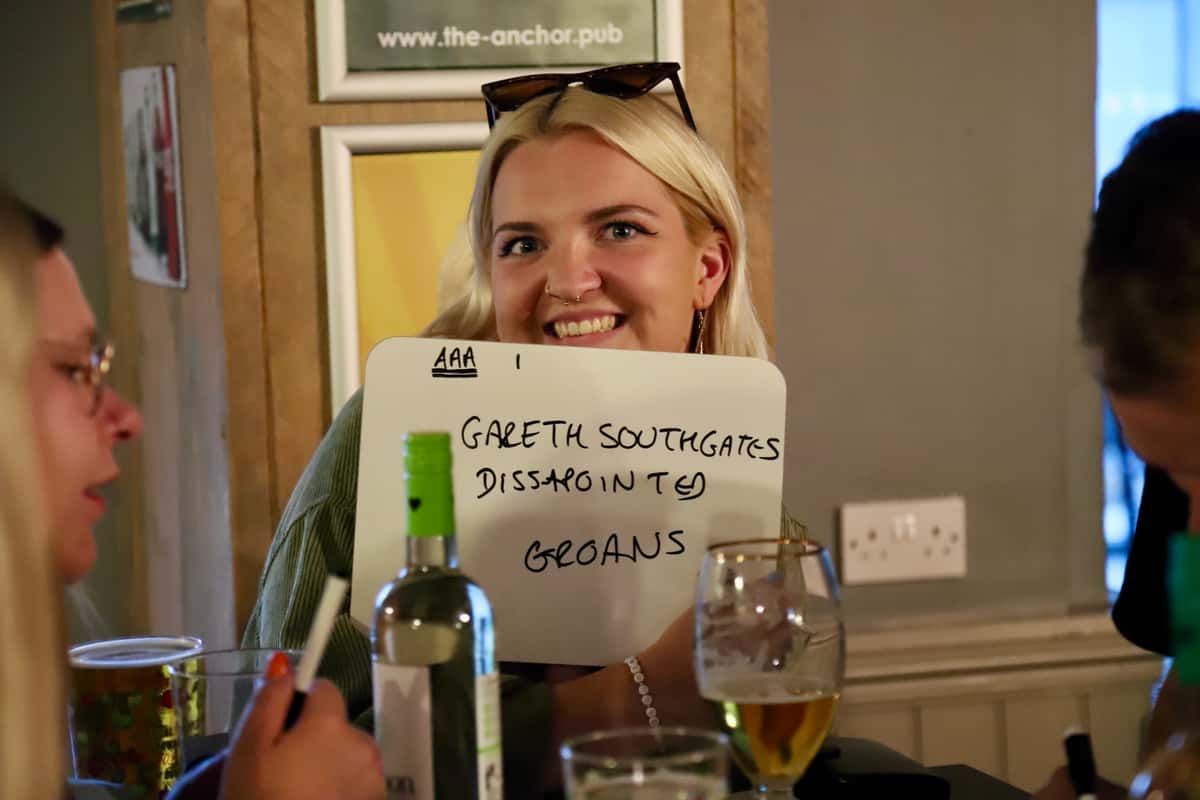 www.the-anchor.pub
AAA 1
GARETH SOUTHGATES
DISSAPOINTED
GROANS